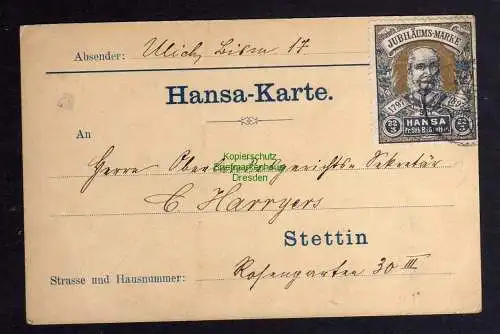 Absender: Ulich, Bism 17
JUBILÄUMS-MARKE
1797 1897
HANSA
Hansa-Karte.
An
Herrn Oberlandesgerichts-Sekretär
C. Harryers
Kopierschutz
Briefmarkenhaus
Dresden
Stettin
Strasse und Hausnummer: Rosengarten 30 III